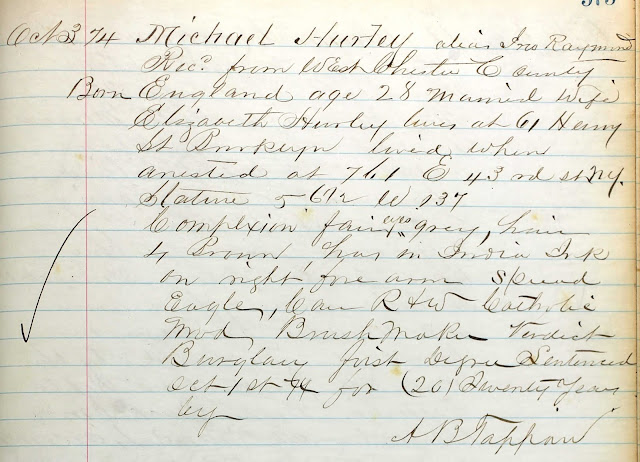 Oct 3 74 Michael Hurley alias Jno Raymond
Recd from West Chester County
Born England age 28 Married Wife
Elizabeth Hurley lives at 61 Henry
St Brooklyn lived when
arrested at 761 E 43rd st NY.
Stature 5 6 1/2 W 137
Complexion fair eyes grey, hair
Brown, has in India Ink
on right fore arm Spread
Eagle, Can R & W Catholic
Mod, Brush Maker Verdict
Burglary first Degree Sentenced
Oct 1st 74 for (20) Twenty Years
by
A B Tappan